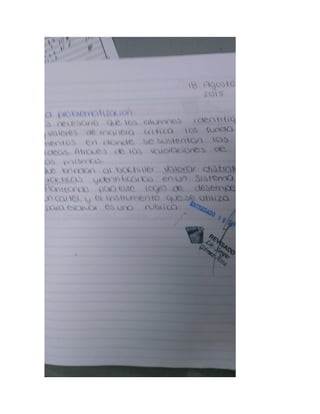 18 Agosto
2015
a problematización
s necesario que los alumnos identifiq
valores de manera critica los funda
mentos en donde se sustentan las
ideas. Através de las valoraciones de
as mismas.
ue brindan al bachiller valorar
practicas ydentificarlos en un sistema
Planteando para este logro de desempe
un cartel, y el instrumento que se utiliza
para evaluar es una rubrica.
ENTREGADO
REVISADO